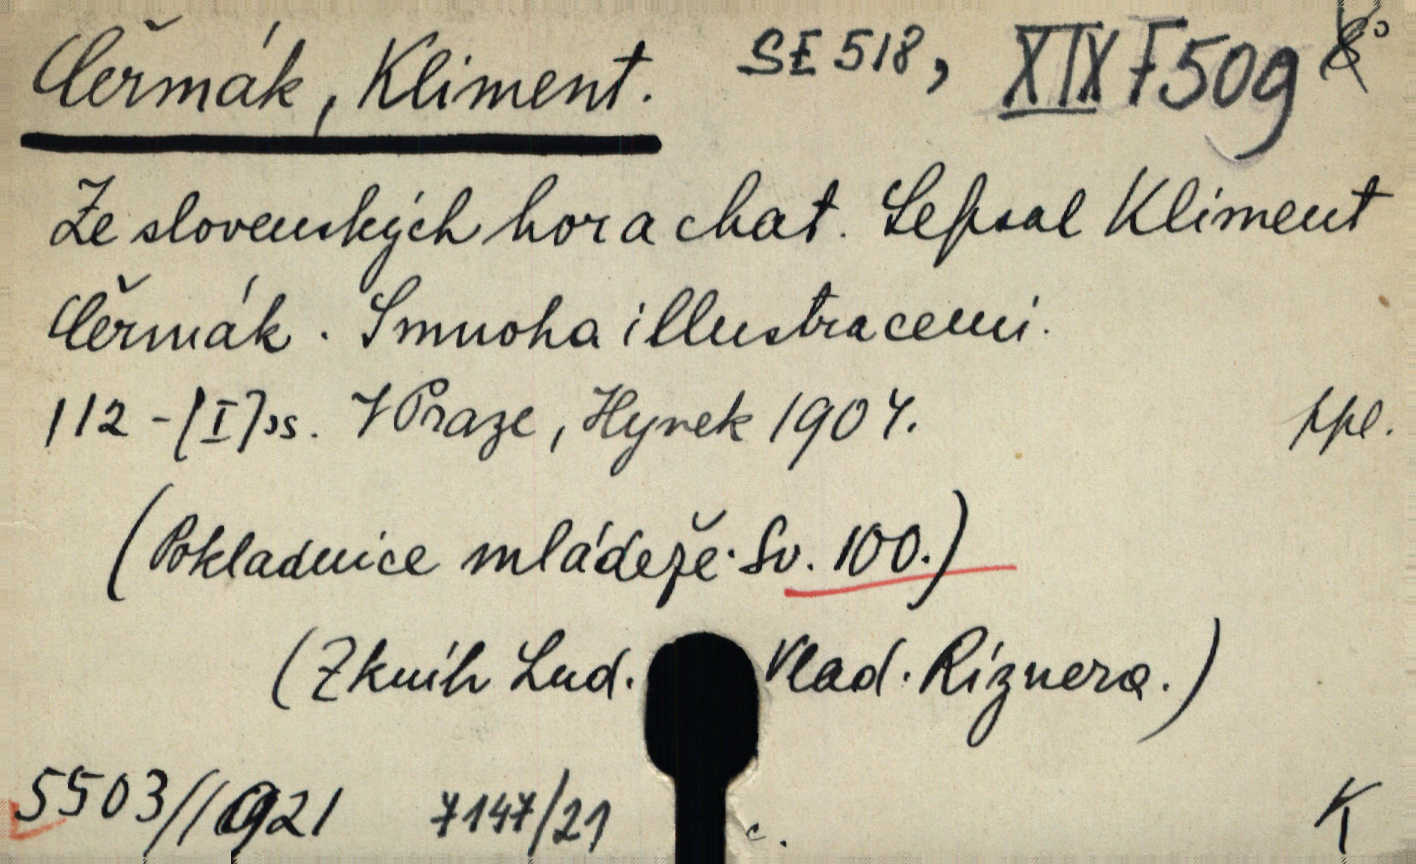 Čermák, Kliment. SE 518, XIX F 509 8°
Ze slovenských hor a chat. Sepsal Kliment
Čermák. S mnoha illustracemi.
112 - [I] ss. V Praze, Hynek 1904. ppl.
(Pokladnice mládeže. Sv. 100.)
(Z knih Lud. Vlad. Riznera.)
5503//1921 7147/21 c. K